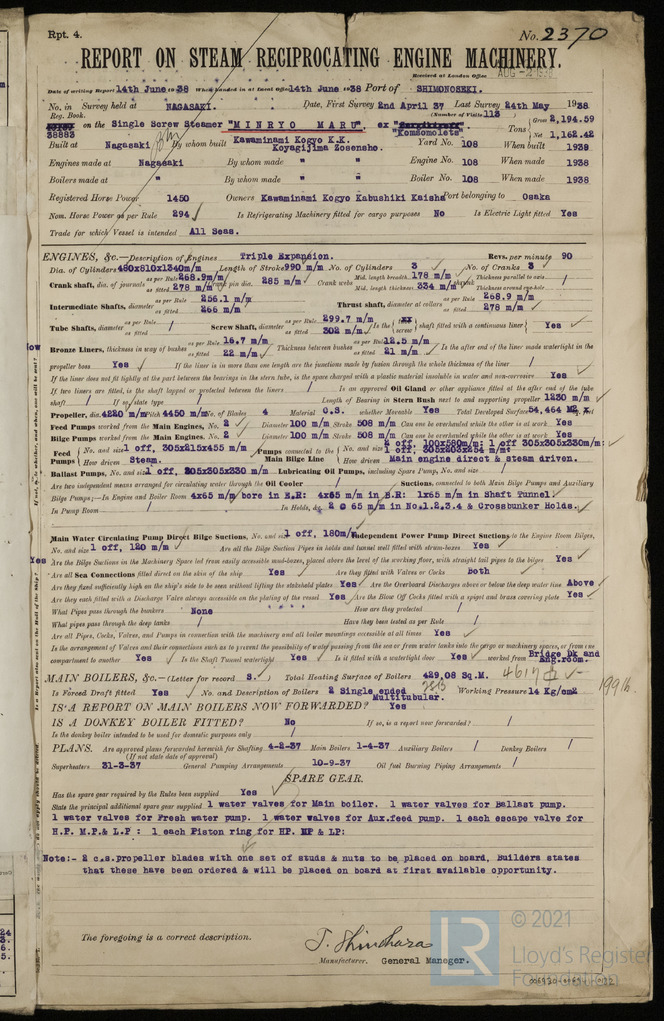 Rpt. 4.
No. 2370
REPORT ON STEAM RECIPROCATING ENGINE MACHINERY.
Received at London Office AUG -2 1938
Date of writing Report 14th June 1938 When handed in at Local Office 14th June 1938 Port of SHIMONOSEKI.
No. in Survey held at NAGASAKI. Date, First Survey 2nd April 37 Last Survey 24th May 1938
Reg. Book. (Number of Visits 113)
38883 on the Single Screw Steamer "MINRYO MARU". ex "Komsomolets" Tons { Gross 2,194.59 Net 1,162.42
Built at Nagasaki By whom built Kawaminami Kogyo K.K. Koyagijima Zosensho. Yard No. 108 When built 1938
Engines made at Nagasaki By whom made " " Engine No. 108 When made 1938
Boilers made at " By whom made " " Boiler No. 108 When made 1938
Registered Horse Power 1450 Owners Kawaminami Kogyo Kabushiki Kaisha Port belonging to Osaka
Nom. Horse Power as per Rule 294 Is Refrigerating Machinery fitted for cargo purposes No Is Electric Light fitted Yes
Trade for which Vessel is intended All Seas.
ENGINES, &c.—Description of Engines Triple Expansion. Revs. per minute 90
Dia. of Cylinders 480x810x1340m/m Length of Stroke 990 m/m No. of Cylinders 3 No. of Cranks 3
Crank shaft, dia. of journals as per Rule 268.9m/m as fitted 278 m/m Crank pin dia. 285 m/m Crank webs Mid. length breadth 178 m/m Mid. length thickness 334 m/m shrunk Thickness parallel to axis / Thickness around eye-hole /
Intermediate Shafts, diameter as per Rule 256.1 m/m as fitted 266 m/m Thrust shaft, diameter at collars as per Rule 268.9 m/m as fitted 278 m/m
Tube Shafts, diameter as per Rule / as fitted / Screw Shaft, diameter as per Rule 299.7 m/m as fitted 302 m/m Is the { screw } shaft fitted with a continuous liner { Yes
Bronze Liners, thickness in way of bushes as per Rule 16.7 m/m as fitted 22 m/m Thickness between bushes as per Rule 12.5 m/m as fitted 21 m/m Is the after end of the liner made watertight in the
propeller boss Yes If the liner is in more than one length are the junctions made by fusion through the whole thickness of the liner /
If the liner does not fit tightly at the part between the bearings in the stern tube, is the space charged with a plastic material insoluble in water and non-corrosive Yes
If two liners are fitted, is the shaft lapped or protected between the liners / Is an approved Oil Gland or other appliance fitted at the after end of the tube
shaft / If so, state type Length of Bearing in Stern Bush next to and supporting propeller 1230 m/m
Propeller, dia. 4220 m/m Pitch 4450 m/m No. of Blades 4 Material C.S. whether Moveable Yes Total Developed Surface 54,464
Feed Pumps worked from the Main Engines, No. 2 Diameter 100 m/m Stroke 508 m/m Can one be overhauled while the other is at work Yes
Bilge Pumps worked from the Main Engines, No. 2 Diameter 100 m/m Stroke 508 m/m Can one be overhauled while the other is at work Yes
Feed Pumps { No. and size 1 off, 305x215x455 m/m Pumps connected to the Main Bilge Line { No. and size 2 off, 100x580m/m: 1 off 305x305x330m/m: 1 off, 305x203x254 m/m:
How driven Steam. How driven Main engine direct & steam driven.
Ballast Pumps, No. and size 1 off, 305x305x330 m/m Lubricating Oil Pumps, including Spare Pump, No. and size /
Are two independent means arranged for circulating water through the Oil Cooler / Suctions, connected to both Main Bilge Pumps and Auxiliary
Bilge Pumps;—In Engine and Boiler Room 4x65 m/m bore in E.R: 4x65 m/m in B.R: 1x65 m/m in Shaft Tunnel.
In Pump Room / In Holds, &c. 2 @ 65 m/m in No.1.2.3.4 & Crossbunker Holds.
Main Water Circulating Pump Direct Bilge Suctions, No. and size 1 off, 180m/m Independent Power Pump Direct Suctions to the Engine Room Bilges,
No. and size 1 off, 120 m/m Are all the Bilge Suction Pipes in holds and tunnel well fitted with strum-boxes Yes
Are the Bilge Suctions in the Machinery Space led from easily accessible mud-boxes, placed above the level of the working floor, with straight tail pipes to the bilges Yes
Are all Sea Connections fitted direct on the skin of the ship Yes Are they fitted with Valves or Cocks both
Are they fixed sufficiently high on the ship's side to be seen without lifting the stokehold plates Yes Are the Overboard Discharges above or below the deep water line Above
Are they each fitted with a Discharge Valve always accessible on the plating of the vessel Yes Are the Blow Off Cocks fitted with a spigot and brass covering plate Yes
What Pipes pass through the bunkers None How are they protected /
What pipes pass through the deep tanks / Have they been tested as per Rule /
Are all Pipes, Cocks, Valves, and Pumps in connection with the machinery and all boiler mountings accessible at all times Yes
Is the arrangement of Valves and their connections such as to prevent the possibility of water passing from the sea or from water tanks into the cargo or machinery spaces, or from one
compartment to another Yes Is the Shaft Tunnel watertight Yes Is it fitted with a watertight door Yes worked from Bridge Dk and Eng.room.
MAIN BOILERS, &c.—(Letter for record S.) Total Heating Surface of Boilers 429.08 Sq.M. 4617
Is Forced Draft fitted Yes No. and Description of Boilers 2 Single ended Multitubular. 2SB Working Pressure 14 Kg/cm2 199 lb.
IS A REPORT ON MAIN BOILERS NOW FORWARDED? Yes
IS A DONKEY BOILER FITTED? No If so, is a report now forwarded? /
Is the donkey boiler intended to be used for domestic purposes only /
PLANS. Are approved plans forwarded herewith for Shafting 4-2-37 Main Boilers 1-4-37 Auxiliary Boilers / Donkey Boilers /
(If not state date of approval)
Superheaters 31-3-37 General Pumping Arrangements 10-9-37 Oil fuel Burning Piping Arrangements /
SPARE GEAR.
Has the spare gear required by the Rules been supplied Yes
State the principal additional spare gear supplied 1 water valves for Main boiler. 1 water valves for Ballast pump.
1 water valves for Fresh water pump. 1 water valves for Aux.feed pump. 1 each escape valve for
H.P. M.P.& L.P : 1 each Piston ring for HP. MP & LP:
Note:- 2 c.s.propeller blades with one set of studs & nuts to be placed on board, Builders states
that these have been ordered & will be placed on board at first available opportunity.
The foregoing is a correct description.
T. Shinohara
Manufacturer. General Maneger.
LR © 2021
Lloyd's Register
Foundation